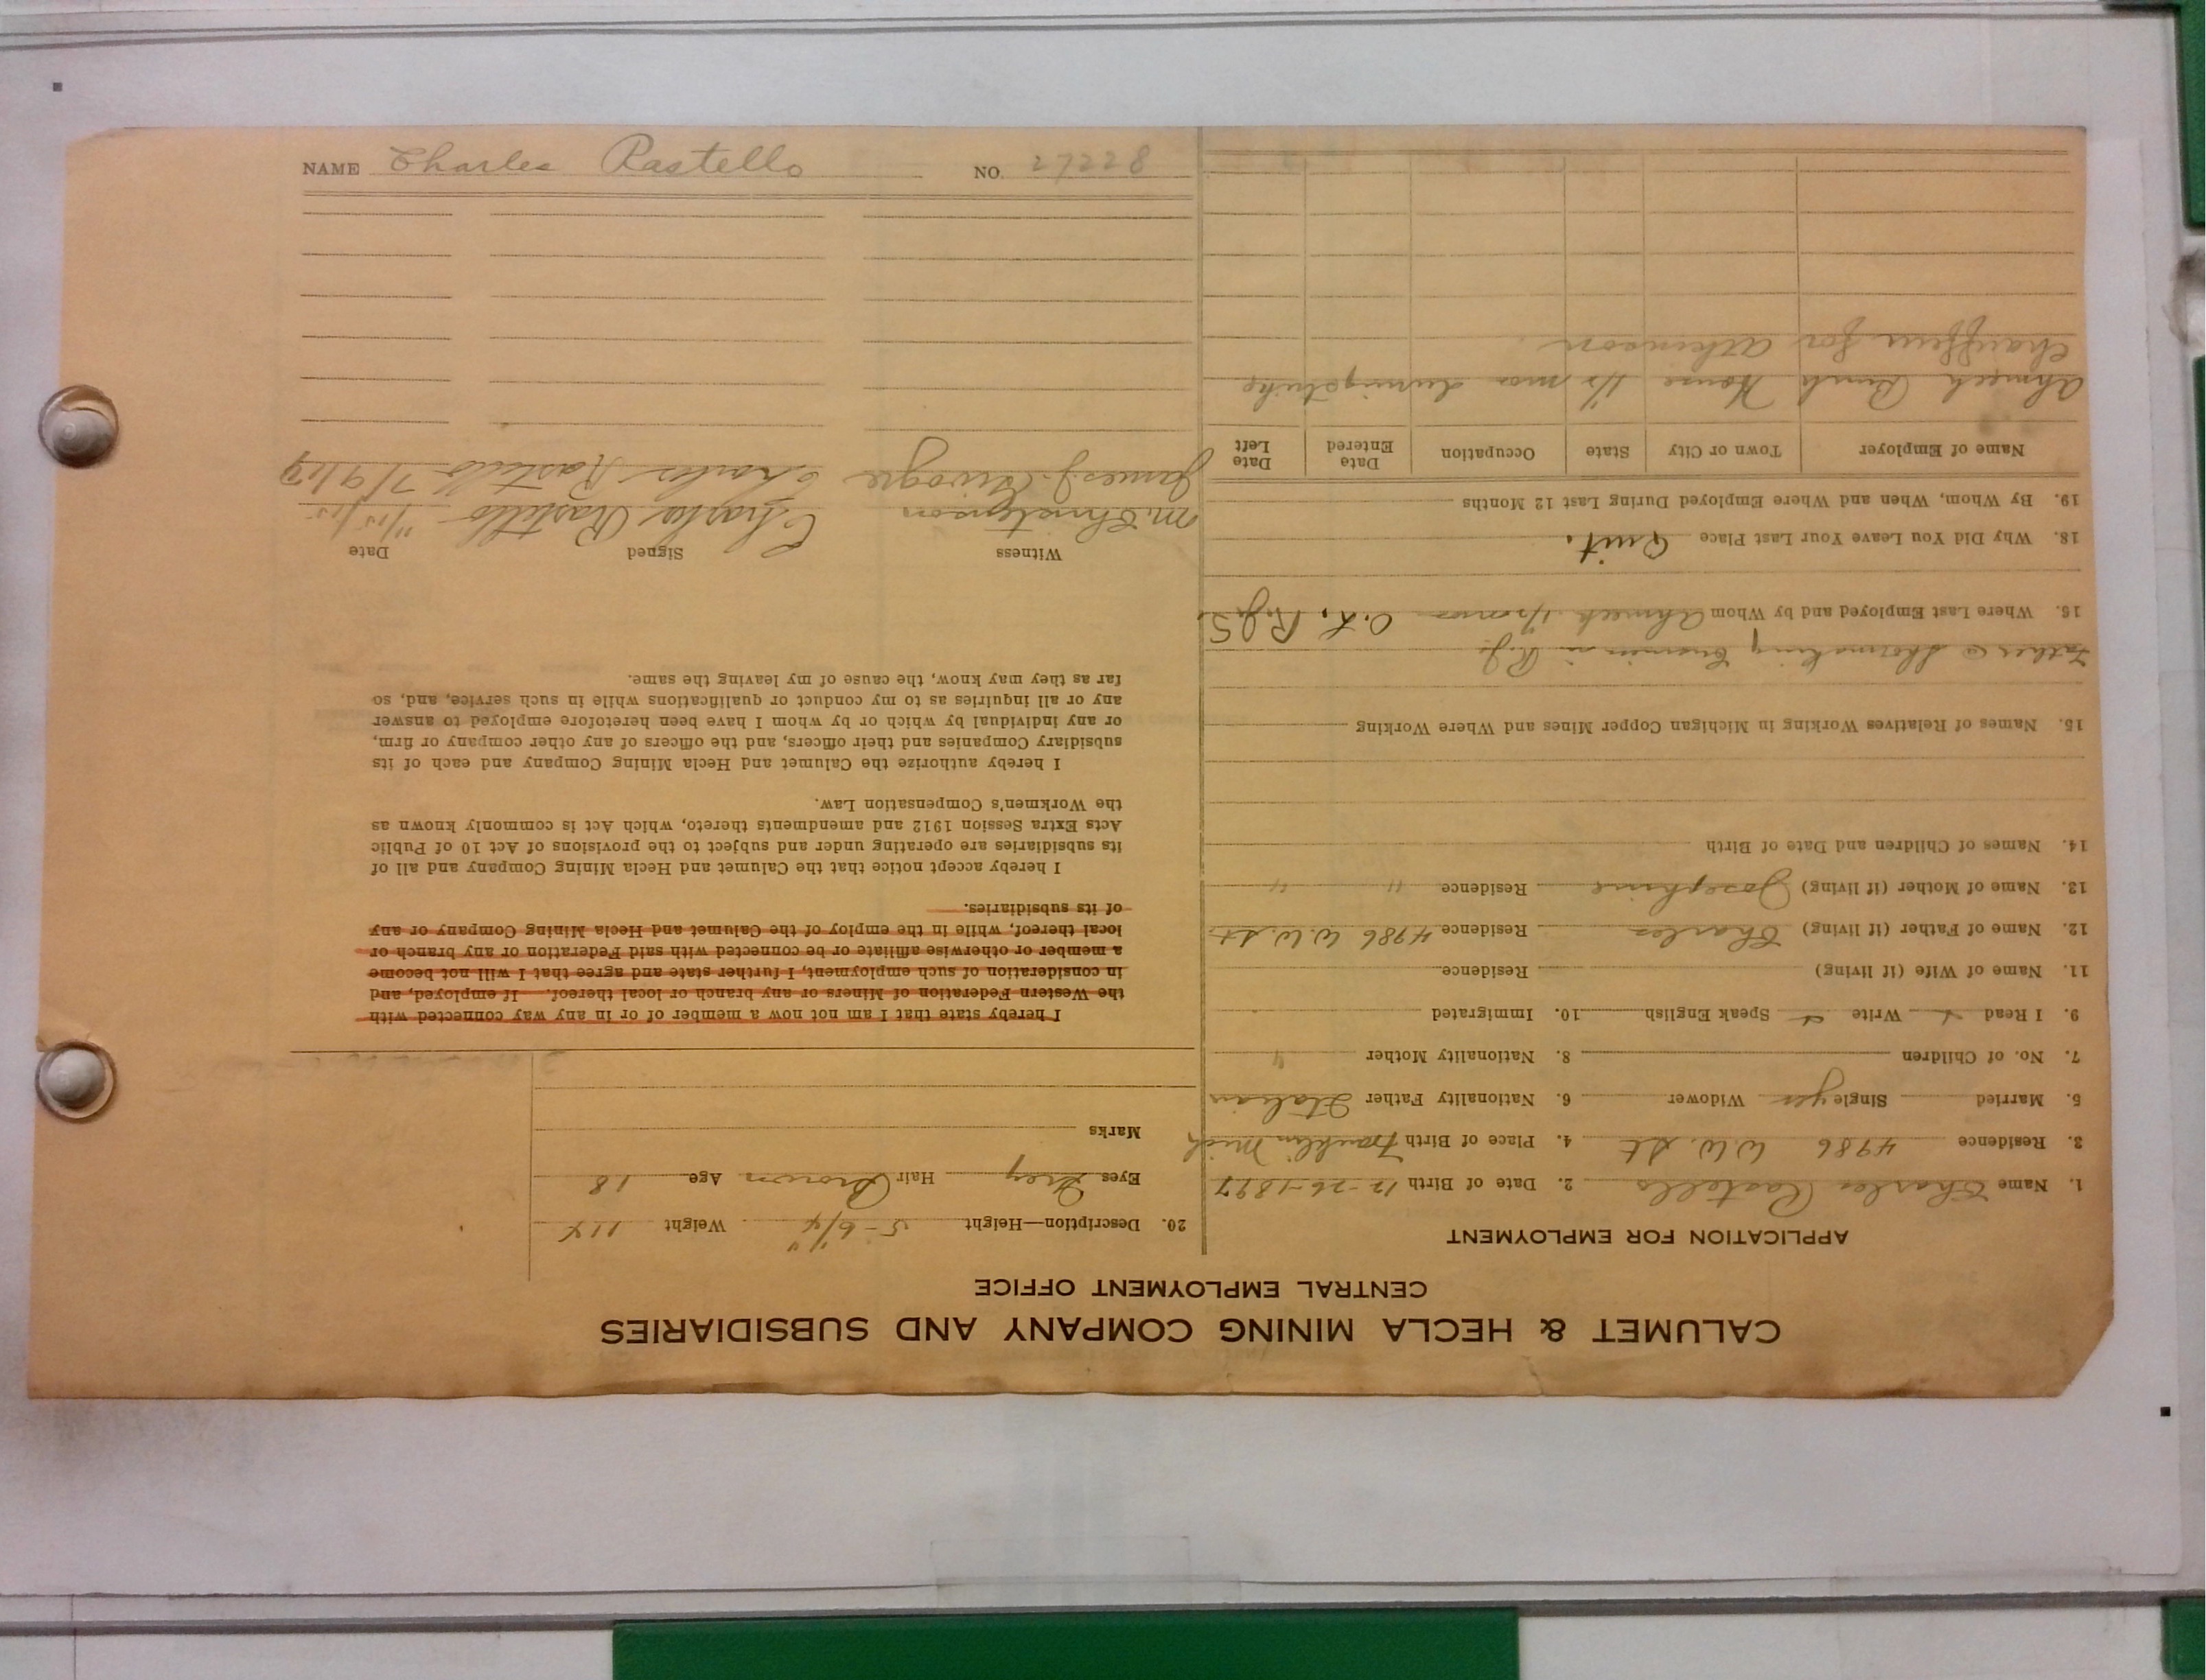 CALUMET & HECLA MINING COMPANY AND SUBSIDIARIES
CENTRAL EMPLOYMENT OFFICE
APPLICATION FOR EMPLOYMENT
1. Name Charles Rastello 2. Date of Birth 12-26-1897
3. Residence 4986 W.W. St 4. Place of Birth Franklin Mich
5. Married Single yes Widower 6. Nationality Father Italian
7. No. of Children 8. Nationality Mother "
9. I Read Write Speak English 10. Immigrated
11. Name of Wife (if living) Residence
12. Name of Father (if living) Charles Residence 4986 W.W. St
13. Name of Mother (if living) Josephine Residence " "
14. Names of Children and Date of Birth
15. Names of Relatives Working in Michigan Copper Mines and Where Working
Father @ Shoemaking in R.J.
16. Where Last Employed and by Whom Ahmeek O.K. R.J.S.
18. Why Did You Leave Your Last Place Quit.
19. By Whom, When and Where Employed During Last 12 Months
Name of Employer Town or City State Occupation Date Entered Date Left
Ahmeek House mos during strike
Chauffeur for Atkinson
20. Description—Height 5-6 1/4" Weight 114
Eyes Grey Hair Brown Age 18
Marks
I hereby state that I am not now a member of or in any way connected with
the Western Federation of Miners or any branch or local thereof. If employed, and
in consideration of such employment, I further state and agree that I will not become
a member or otherwise affiliate or be connected with said Federation or any branch or
local thereof, while in the employ of the Calumet and Hecla Mining Company or any
of its subsidiaries.
I hereby accept notice that the Calumet and Hecla Mining Company and all of
its subsidiaries are operating under and subject to the provisions of Act 10 of Public
Acts Extra Session 1912 and amendments thereto, which Act is commonly known as
the Workmen's Compensation Law.
I hereby authorize the Calumet and Hecla Mining Company and each of its
subsidiary Companies and their officers, and the officers of any other company or firm,
or any individual by which or by whom I have been heretofore employed to answer
any or all inquiries as to my conduct or qualifications while in such service, and, so
far as they may know, the cause of my leaving the same.
Witness Signed Date
M. Christenson Charles Rastello 11/15/15
James J. Charles Rastello 7/9/19
NAME Charles Rastello NO. 27228